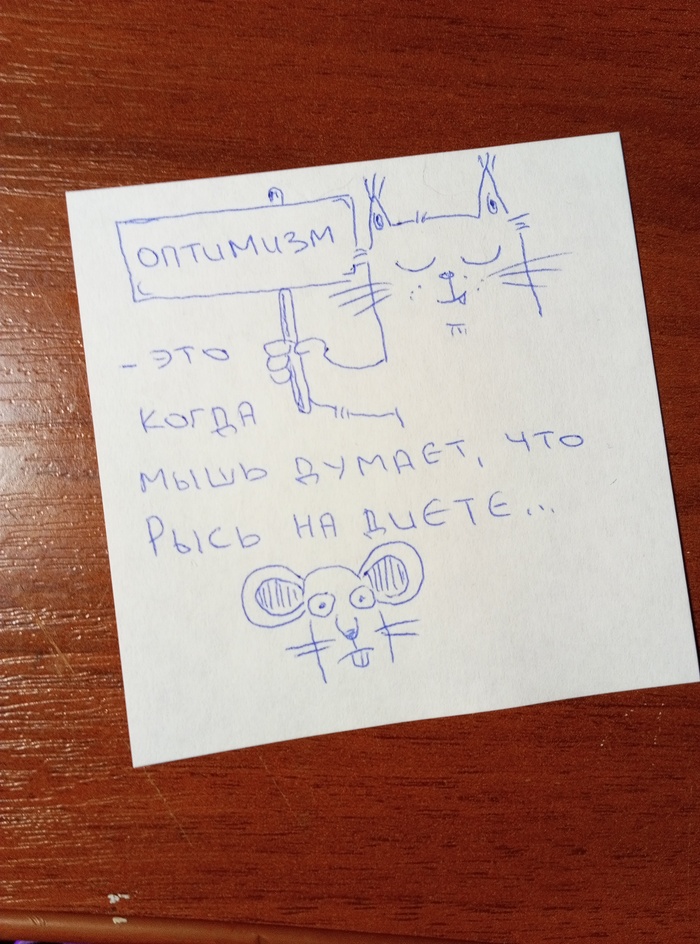 ОПТИМИЗМ
- ЭТО
КОГДА
МЫШЬ ДУМАЕТ, ЧТО
РЫСЬ НА ДИЕТЕ...